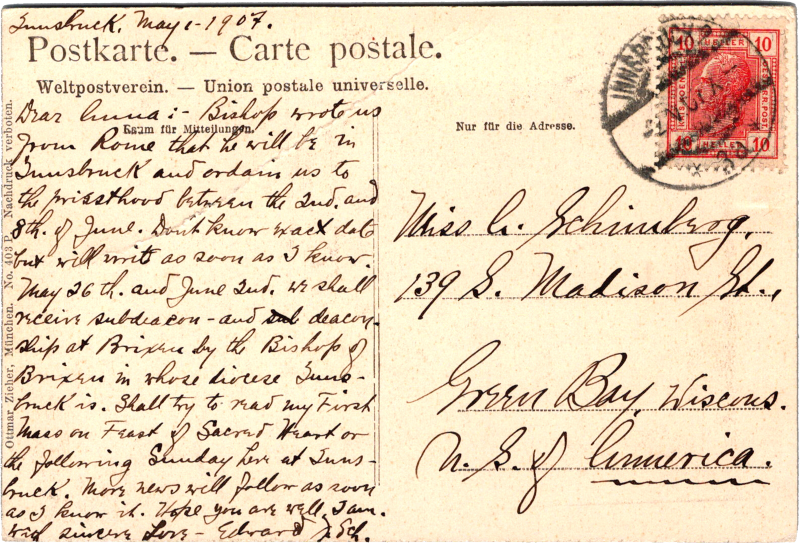 Innsbruck, May 1-1907.
Postkarte. — Carte postale.
Weltpostverein. — Union postale universelle.
Raum für Mitteilungen.
Dear Anna:- Bishop wrote us
from Rome that he will be in
Innsbruck and ordain us to
the priesthood between the 2nd. and
8th. of June. Dont know exact date
but will write as soon as I know.
May 26th. and June 2nd. we shall
receive subdeacon-and sub deacon-
ship at Brixen by the Bishop of
Brixen in whose diocese Inns-
bruck is. Shall try to read my First
Mass on Feast of Sacred Heart or
the following Sunday here at Inns-
bruck. More news will follow as soon
as I know it. Hope you are well, I am.
With sincere Love- Edward J. Sch.
Ottmar Zieher, München. No. 403 P. Nachdruck verboten.
Nur für die Adresse.
Miss A. Schimberg,
139 S. Madison St.,
Green Bay, Wiscons.
U. S. of America.
INNSBRUCK
10 10
10 HELLER 10